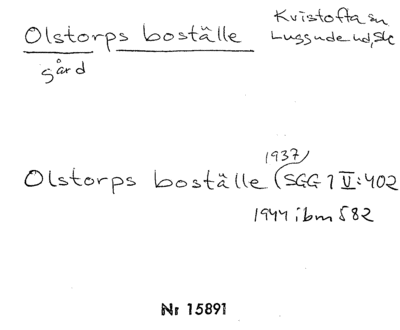 Olstorps boställe
Kvistofta sn
Luggude hd, Sk
gård
1937
Olstorps boställe (SGG 1 V:402
1944 ibm 582
Nr 15891